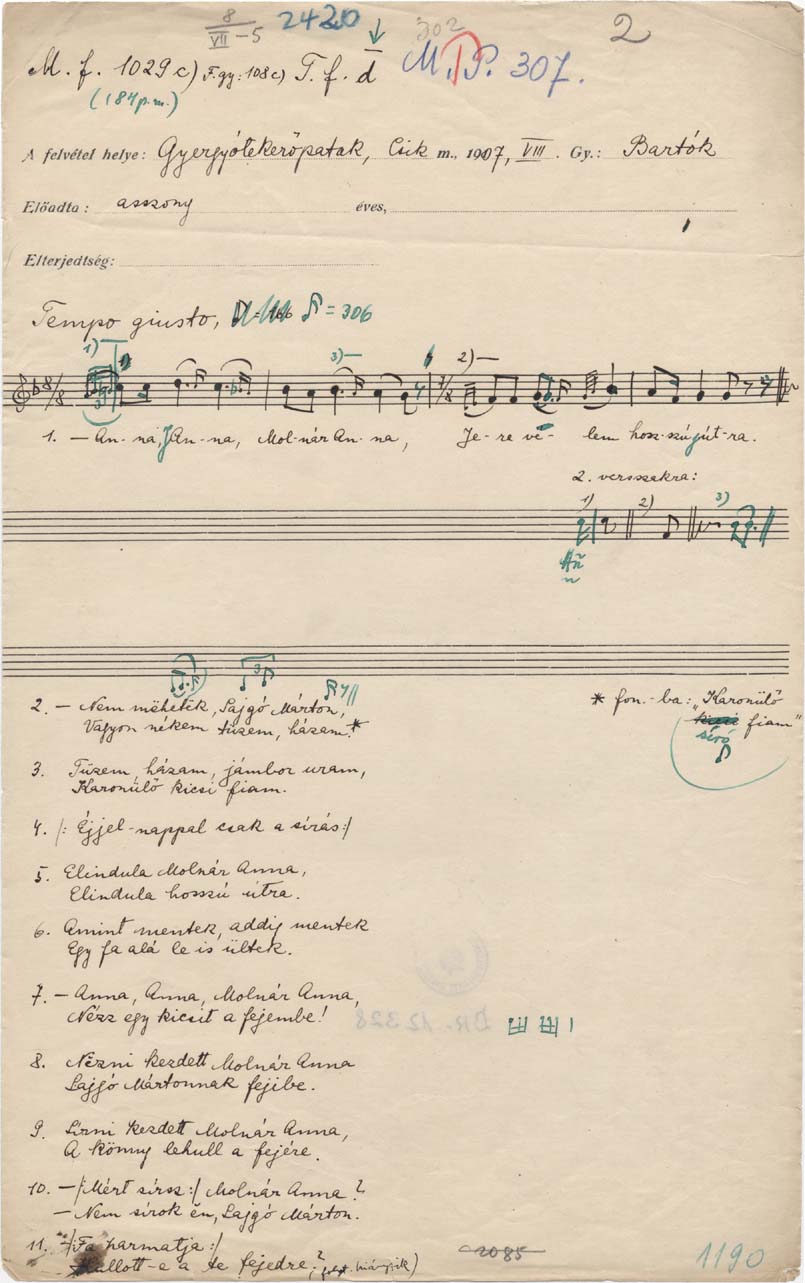 8/VII-5 2420 302 2
M. f. 1029 c) F. gy: 108 c) T. f. d M.P. 307.
(184 p.m.)
A felvétel helye: Gyergyótekerőpatak, Csik m., 1907, VIII. Gy.: Bartók
Előadta: asszony éves,
Elterjedtség:
Tempo giusto, = 306
1) 3) 2)
8/8 7/8
1. – An-na, An-na, Mol-nár An-na, Je-re ve-lem hosz-szú út-ra.
2. versszakra:
1) 2) 3)
2. – Nem mehetek, Sajgó Márton,
Vagyon nékem tüzem, házam.*
* fon.-ba: „Karonülő
kicsi fiam"
síró
3. Tüzem, házam, jámbor uram,
Karonülő kicsi fiam.
4. /: Éjjel-nappal csak a sírás :/
5. Elindula Molnár Anna,
Elindula hosszú útra.
6. Amint mentek, addig mentek
Egy fa alá le is ültek.
7. – Anna, Anna, Molnár Anna,
Nézz egy kicsit a fejembe!
DR. 12328
8. Nézni kezdett Molnár Anna
Sajgó Mártonnak fejibe.
9. Sírni kezdett Molnár Anna,
A könny lehull a fejére.
10. – /: Mért sírsz :/ Molnár Anna?
– Nem sírok én, Sajgó Márton.
11. – /: Fa harmatja :/
Hullott-e a te fejedre? hiányzik)
2085
1190